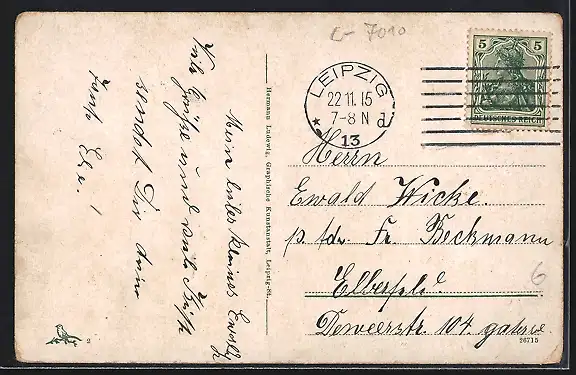 Mein lieber kleiner Ewald!
Viele Grüße und viele Küsse
sendet Dir Deine
Tante Else!
Hermann Ludewig, Graphische Kunstanstalt, Leipzig-St.
2
C- 7010
LEIPZIG
22 11. 15
7-8 N
* 13 d
5 5
DEUTSCHES REICH
Herrn
Ewald Wicke.
p. Adr. Fr. Beckmann
Elberfeld
Deweerstr. 104.
6
26715